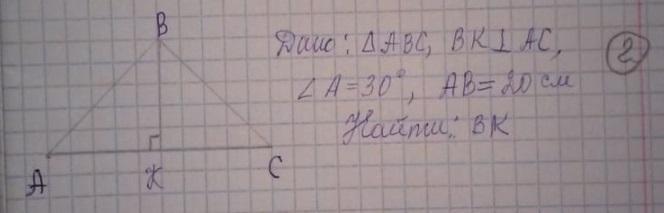 B
Дано: ΔABC, BK⊥AC,
∠A=30°, AB=20 см
Найти: BK
2
A
K
C